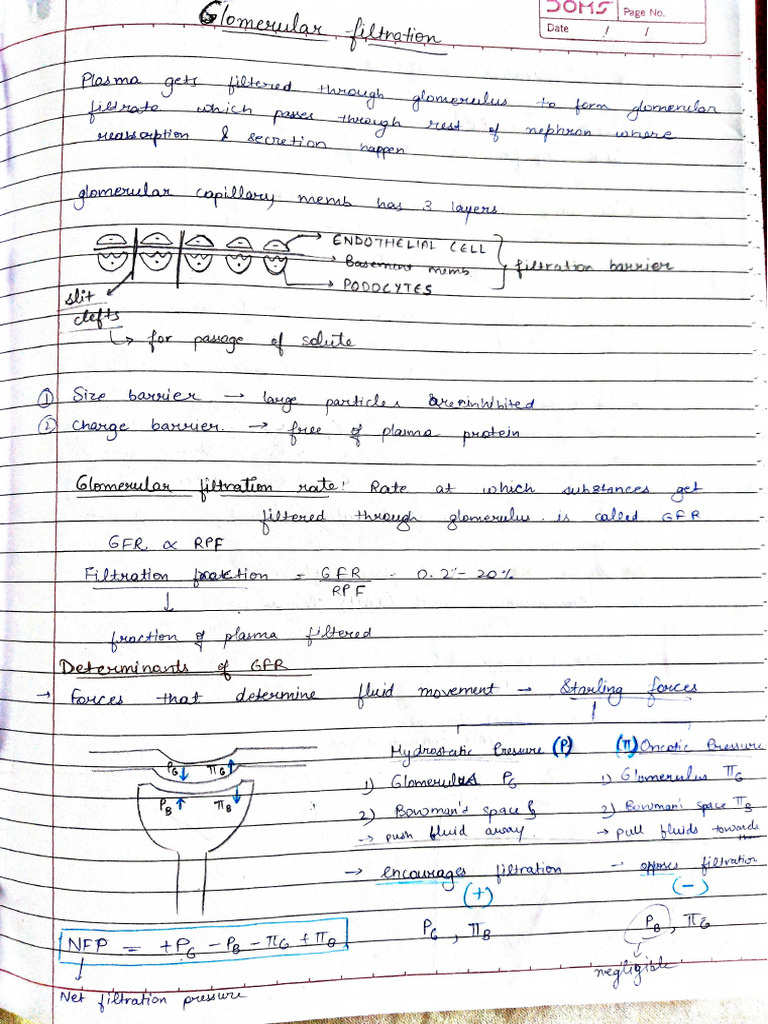 DOMS Page No.
Date / /
Glomerular filtration
Plasma gets filtered through glomerulus to form glomerular
filtrate which passes through rest of nephron where
reabsorption & secretion happen
glomerular capillary memb has 3 layers.
→ ENDOTHELIAL CELL
→ Basement memb
→ PODOCYTES
filtration barrier
slit
clefts
↳ for passage of solute
① Size barrier → large particles are inhibited
② Charge barrier → free of plasma protein
Glomerular filtration rate: Rate at which substances get
filtered through glomerulus is called GFR
GFR ∝ RPF
Filtration fraction = GFR / RPF = 0.2 - 20%
↓
fraction of plasma filtered
Determinants of GFR
→ Forces that determine fluid movement → Starling forces
Hydrostatic Pressure (P) (π) Oncotic Pressure
1) Glomerulus PG 1) Glomerulus πG
2) Bowman's space 2) Bowman's space πB
→ push fluid away. → pull fluids towards
PG ↓ πG ↑
PB ↑ πB ↓
→ encourages filtration → opposes filtration
(+) (-)
PG, πB PB, πG
negligible
NFP = +PG - PB - πG + πB
↓
Net filtration pressure